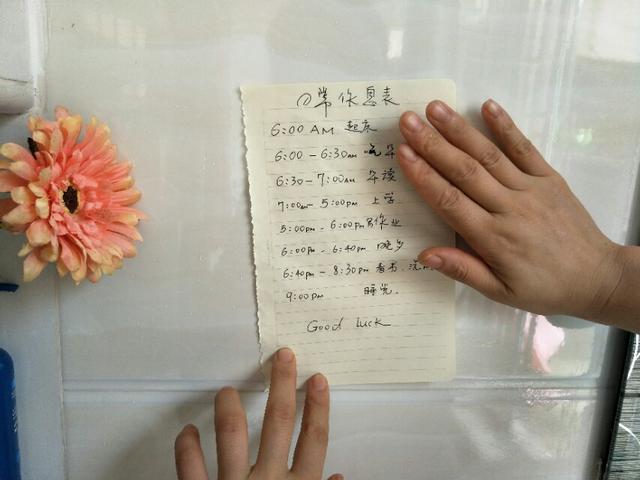 日常作息表
6:00 AM 起床
6:00 - 6:30AM 吃早
6:30 - 7:00AM 早读
7:00AM - 5:00PM 上学
5:00PM - 6:00PM 写作业
6:00PM - 6:40PM 晚
6:40PM - 8:30PM 看书、洗
9:00PM 睡觉.
Good luck